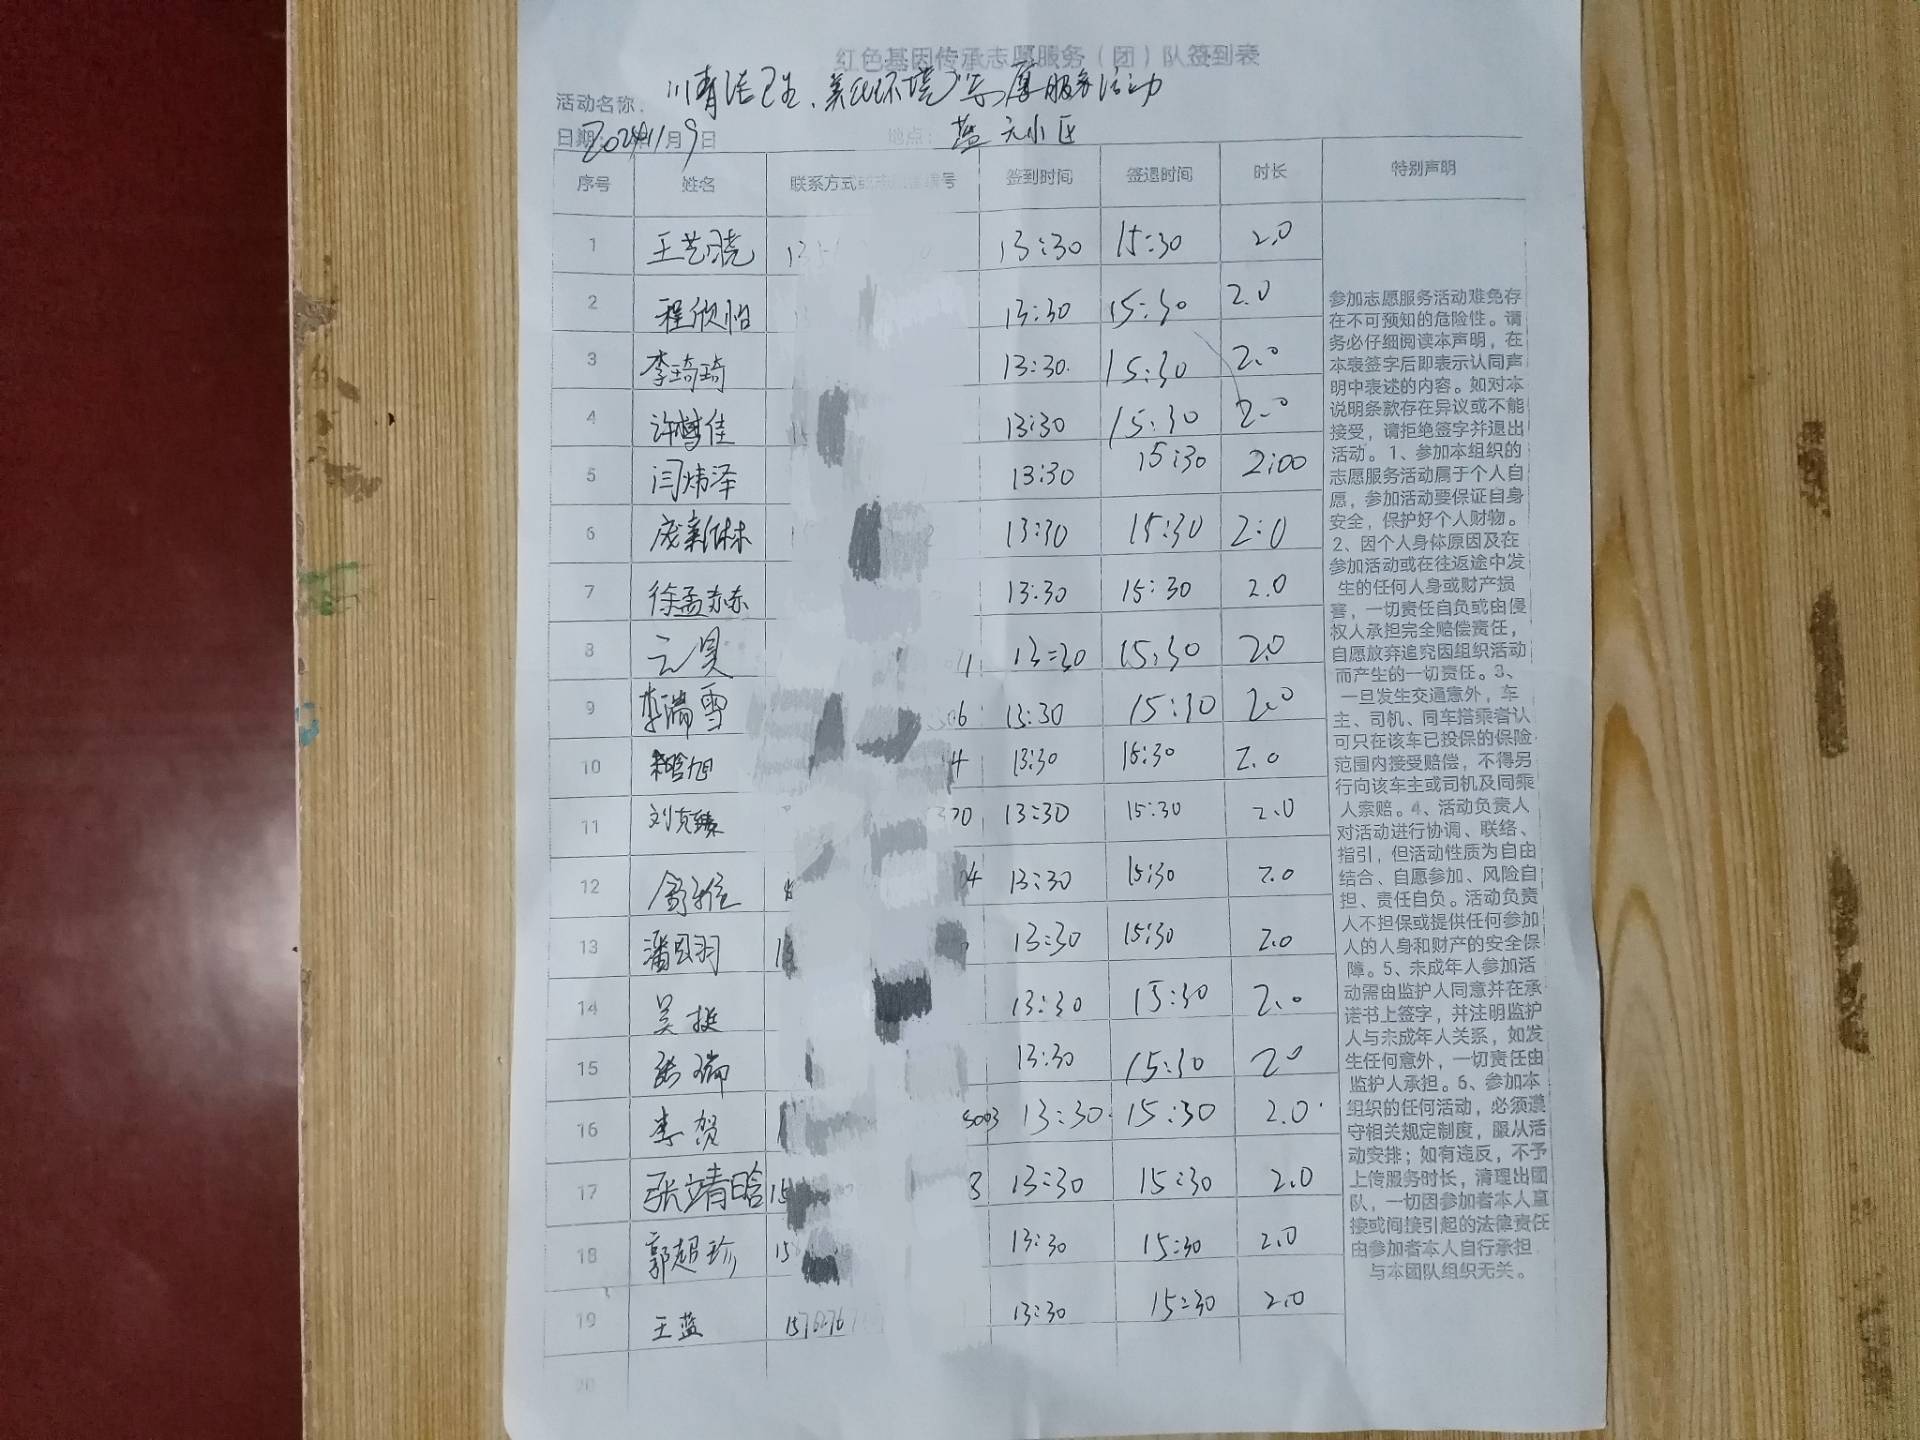 红色基因传承志愿服务（团）队签到表
活动名称: 清洁卫生、美化环境"志愿服务活动
日期: 2024年11月9日 地点: 蓝天小区
序号 姓名 联系方式 号 签到时间 签退时间 时长 特别声明
1 王艺晓 13:30 15:30 2.0
2 程欣怡 13:30 15:30 2.0
3 李琦琦 13:30. 15:30 2.0
4 许 佳 13:30 15:30 2.0
5 闫炜泽 13:30 15:30 2:00
6 庞新林 13:30 15:30 2:0
7 徐孟 13:30 15:30 2.0
8 元昊 1 13:30 15:30 2.0
9 李瑞雪 6 13:30 15:30 2.0
10 晗旭 4 13:30 15:30 2.0
11 刘克臻 70 13:30 15:30 2.0
12 4 13:30 15:30 2.0
13 潘 羽 13:30 15:30 2.0
14 吴挺 13:30 15:30 2.0
15 张瑞 13:30 15:30 2.0
16 李贺 1 5003 13:30 15:30 2.0
17 张靖晗 15 8 13:30 15:30 2.0
18 郭超珍 15 13:30 15:30 2.0
19 王蓝 157 13:30 15:30 2.0
20
参加志愿服务活动难免存
在不可预知的危险性。请
务必仔细阅读本声明，在
本表签字后即表示认同声
明中表述的内容。如对本
说明条款存在异议或不能
接受，请拒绝签字并退出
活动。1、参加本组织的
志愿服务活动属于个人自
愿，参加活动要保证自身
安全，保护好个人财物。
2、因个人身体原因及在
参加活动或在往返途中发
生的任何人身或财产损
害，一切责任自负或由侵
权人承担完全赔偿责任，
自愿放弃追究因组织活动
而产生的一切责任。3、
一旦发生交通意外，车
主、司机、同车搭乘者认
可只在该车已投保的保险
范围内接受赔偿，不得另
行向该车主或司机及同乘
人索赔。4、活动负责人
对活动进行协调、联络、
指引，但活动性质为自由
结合、自愿参加、风险自
担、责任自负。活动负责
人不担保或提供任何参加
人的人身和财产的安全保
障。5、未成年人参加活
动需由监护人同意并在承
诺书上签字，并注明监护
人与未成年人关系，如发
生任何意外，一切责任由
监护人承担。6、参加本
组织的任何活动，必须遵
守相关规定制度，服从活
动安排；如有违反，不予
上传服务时长，清理出团
队，一切因参加者本人直
接或间接引起的法律责任
由参加者本人自行承担，
与本团队组织无关。